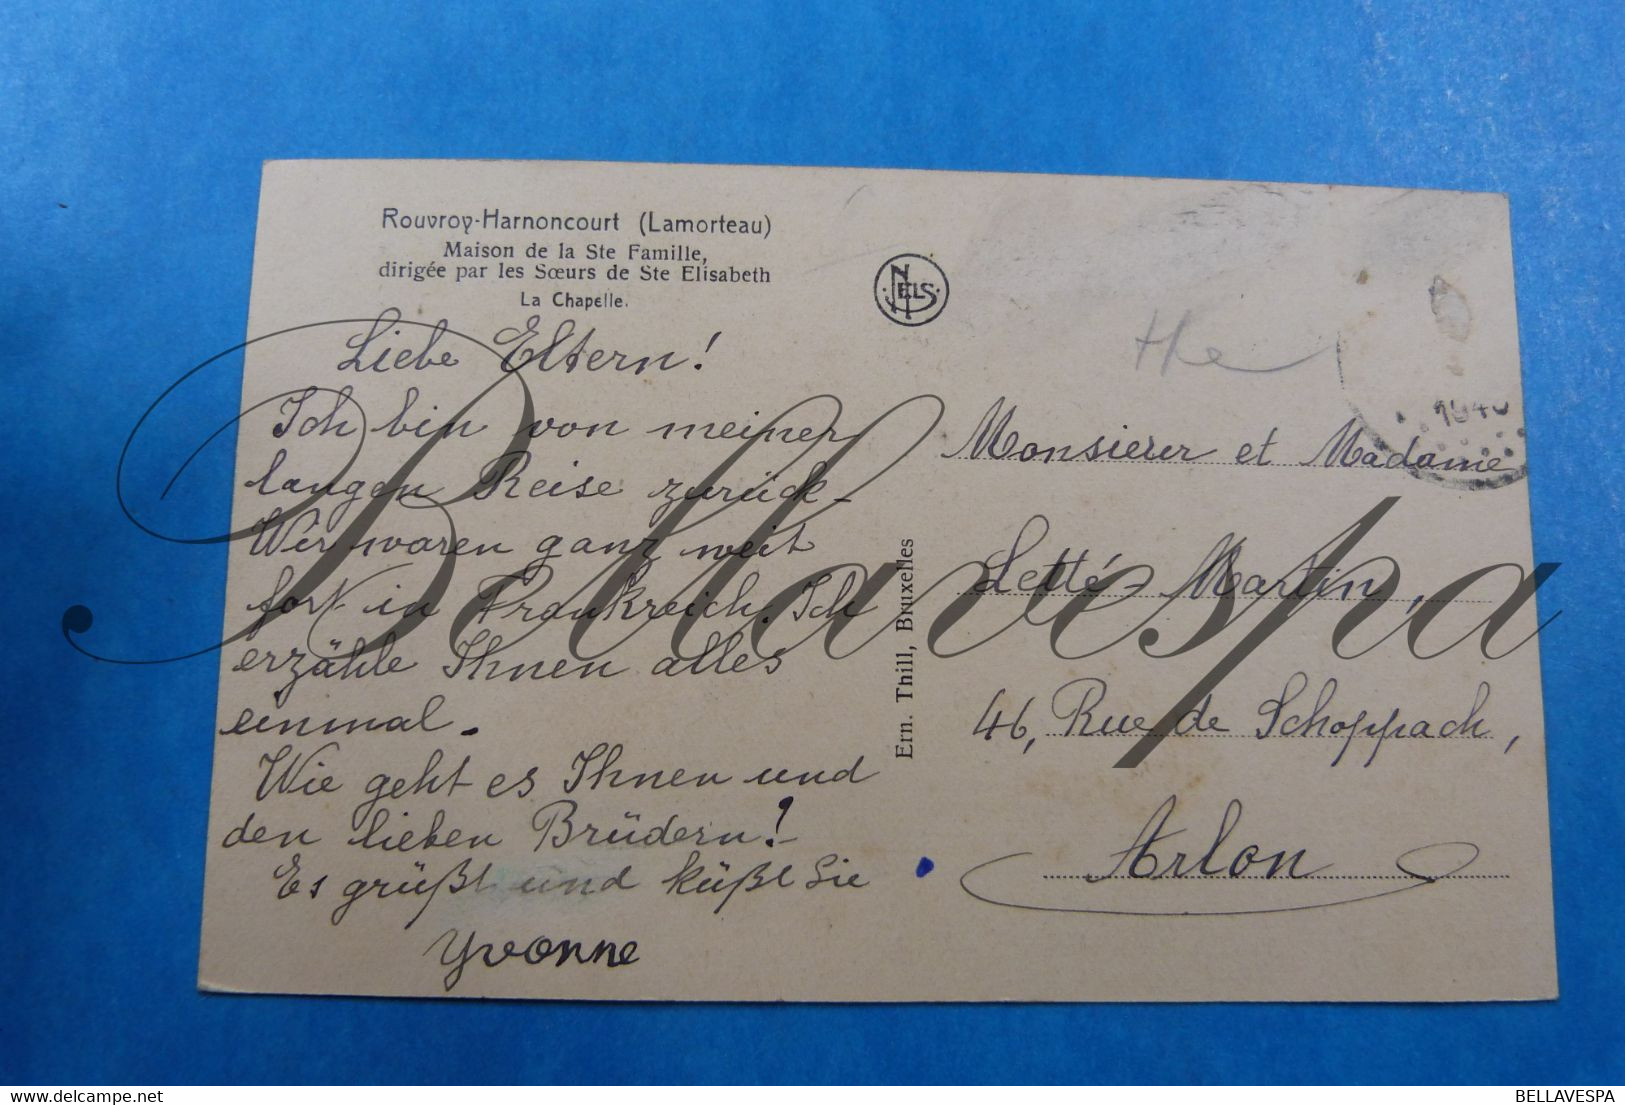 Rouvroy-Harnoncourt (Lamorteau)
Maison de la Ste Famille,
dirigée par les Sœurs de Ste Elisabeth
La Chapelle.
NELS
Liebe Eltern!
Ich bin von meiner
langen Reise zurück-
Wir waren ganz weit
fort in Frankreich. Ich
erzähle Ihnen alles
einmal.
Wie geht es Ihnen und
den lieben Brüdern?
Es grüßt und küßt Sie
Yvonne
Ern. Thill, Bruxelles
Monsieur et Madame
Letté Martin,
46, Rue de Schoppach,
Arlon
Bellavespa
BELLAVESPA